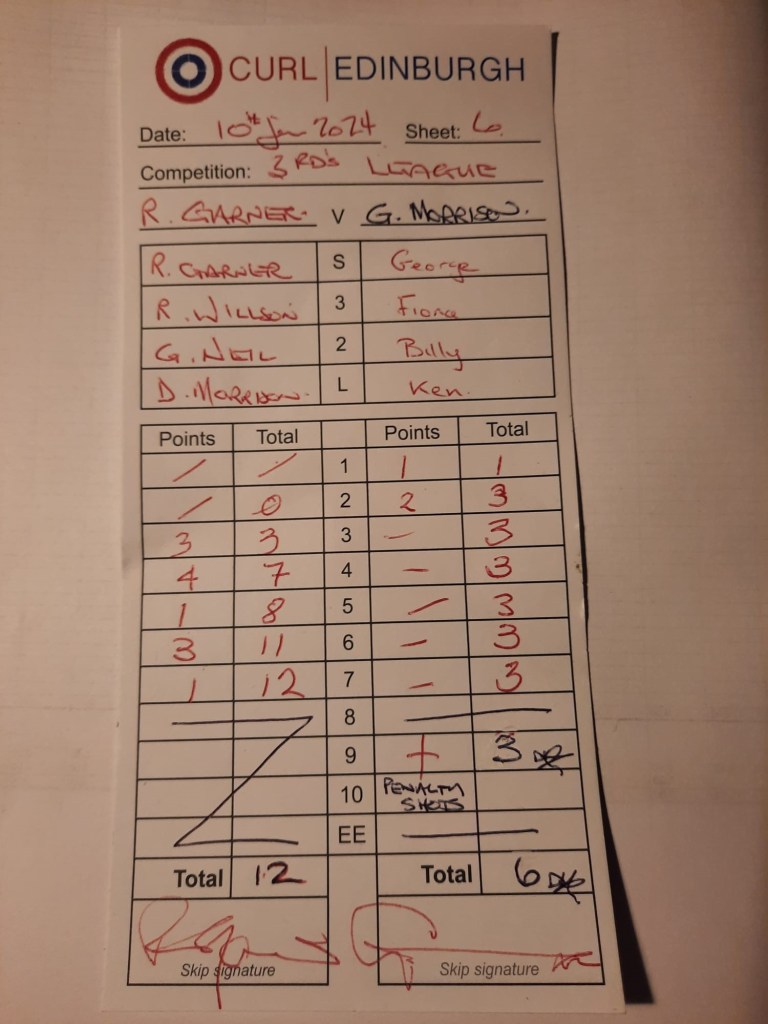 CURL | EDINBURGH
Date: 10th Jan 2024 Sheet: 6.
Competition: 3RD's LEAGUE
R. GARNER. V G. MORRISON.
R. GARNER S George
R. WILLSON 3 Fiona
G. NEIL 2 Billy
D. MORRISON. L Ken.
Points Total Points Total
/ / 1 1 1
/ 0 2 2 3
3 3 3 — 3
4 7 4 — 3
1 8 5 — 3
3 11 6 — 3
1 12 7 — 3
8
9 + 3
10 PENALTY SHOTS
EE
Total 12 Total 6
Skip signature Skip signature